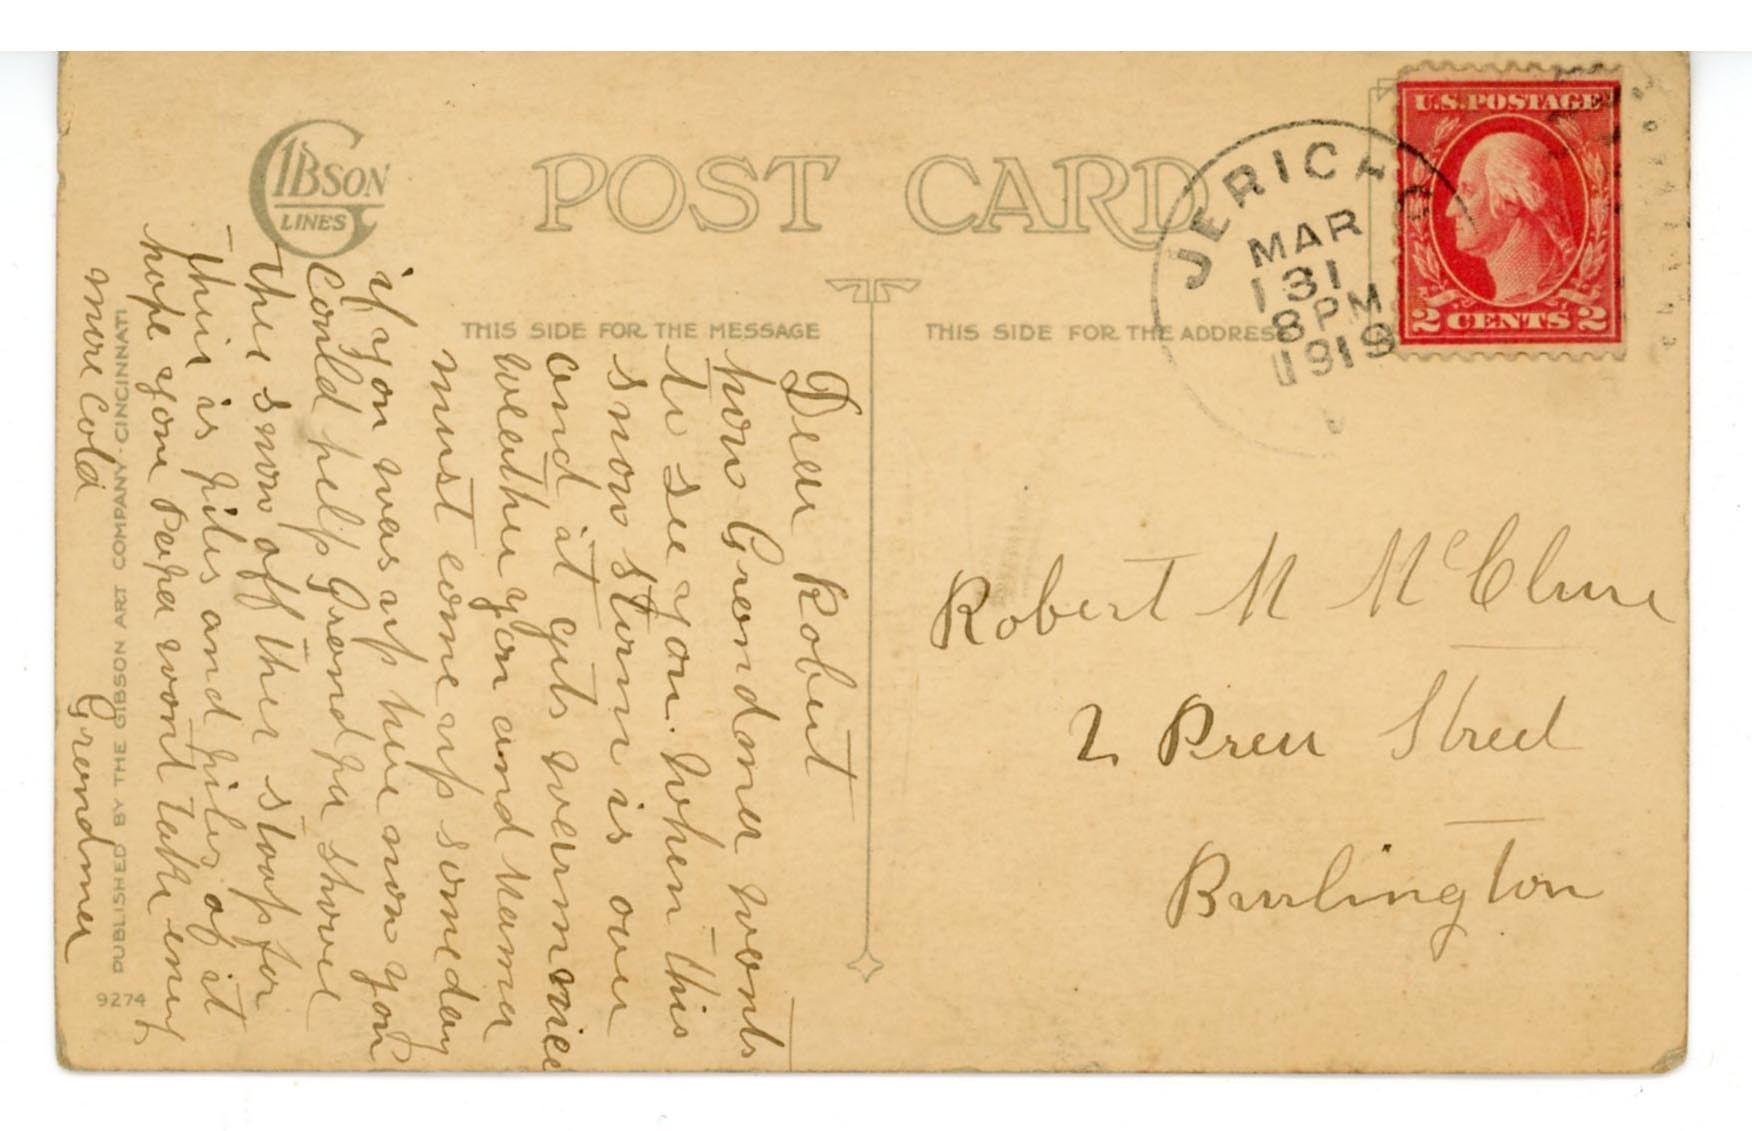 GIBSON
LINES
POST CARD
THIS SIDE FOR THE MESSAGE
THIS SIDE FOR THE ADDRESS
JERICHO
MAR
31
8 PM
1919
U.S. POSTAGE
2 CENTS 2
Dear Robert
how Grandma wonts
to see you. when this
snow storm is over
and it gets warm nice
weather you and Mama
must come up some day
if you was up here now you
could help Grandpa shovel
the snow off ther stoop for
their is piles and piles of it
hope your Papa wont take eny
more cold
Grandma
Robert M McClure
2 Street
Burlington
PUBLISHED BY THE GIBSON ART COMPANY - CINCINNATI
9274